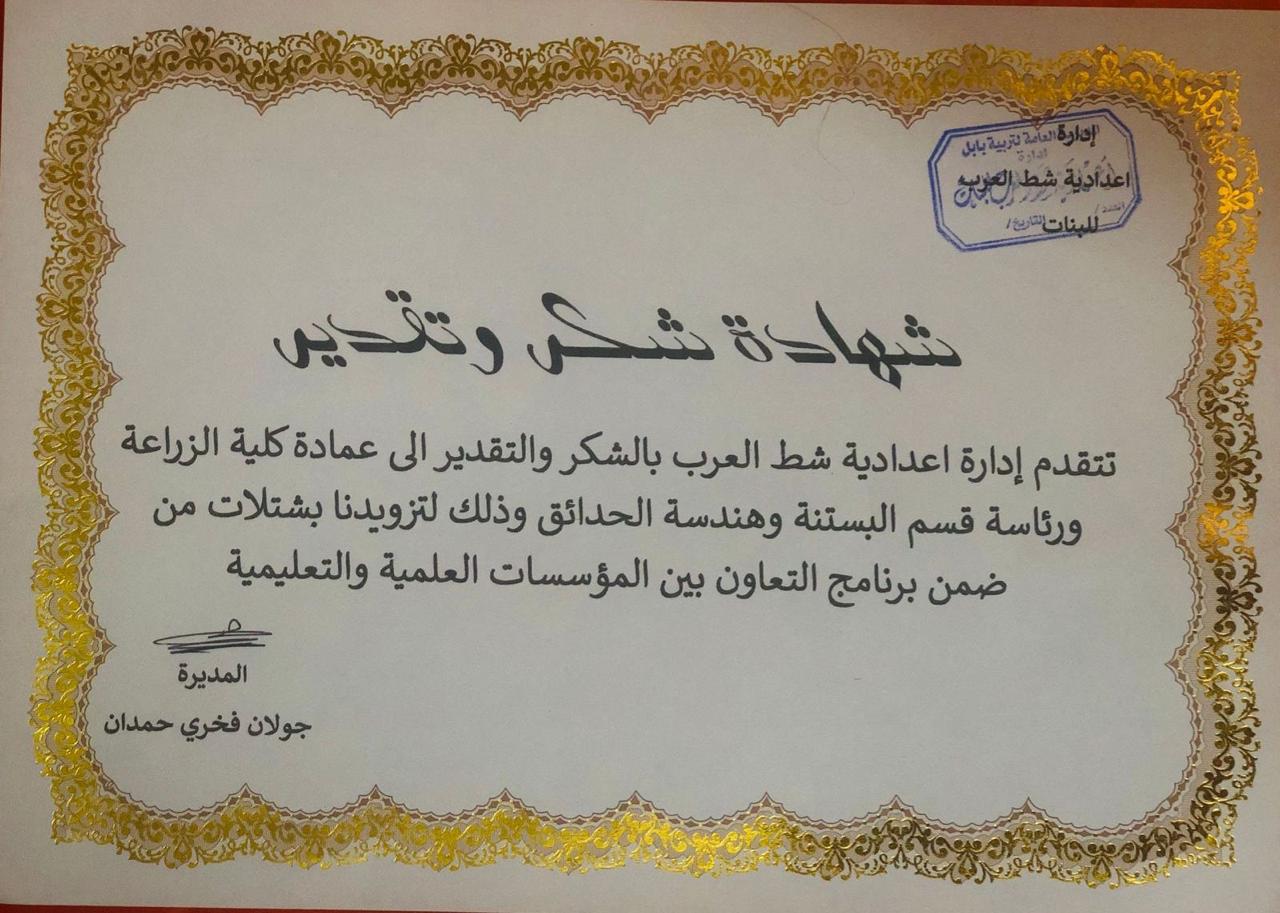 إدارة
العامة لتربية بابل
ادارة
اعدادية شط العرب
للبنات
العدد /
التاريخ /
شهادة شكر وتقدير
تتقدم إدارة اعدادية شط العرب بالشكر والتقدير الى عمادة كلية الزراعة
ورئاسة قسم البستنة وهندسة الحدائق وذلك لتزويدنا بشتلات من
ضمن برنامج التعاون بين المؤسسات العلمية والتعليمية
المديرة
جولان فخري حمدان